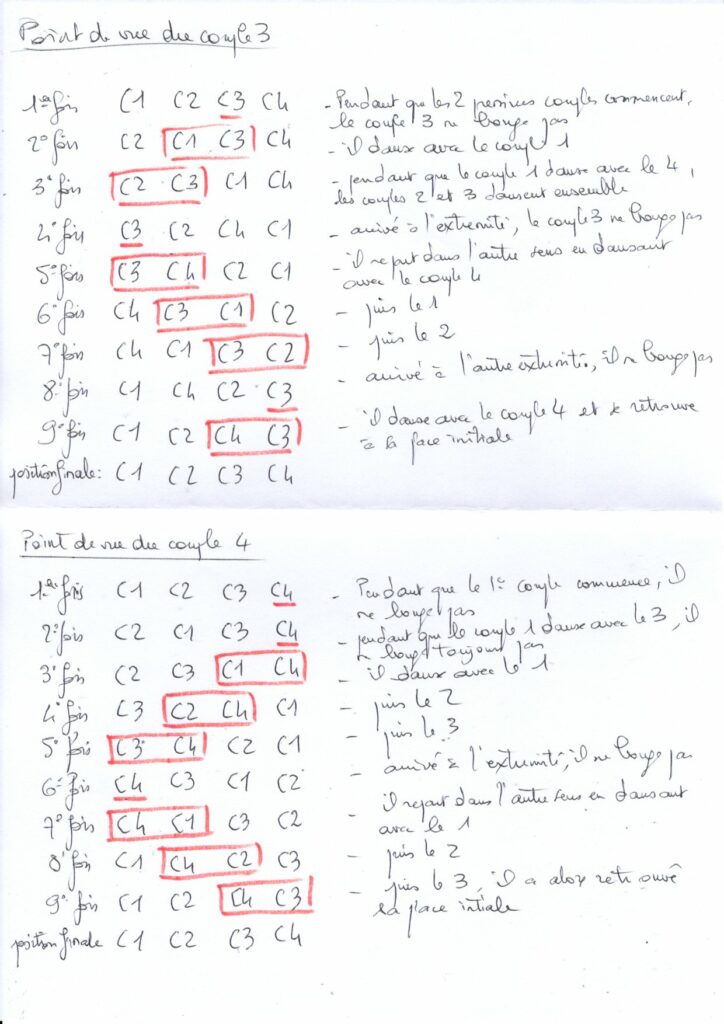 Point de vue du couple 3
1ère fois C1 C2 C3 C4 - Pendant que les 2 premiers couples commencent,
le couple 3 ne bouge pas
2e fois C2 C1 C3 C4 - il danse avec le couple 1
3e fois C2 C3 C1 C4 - pendant que le couple 1 danse avec le 4,
les couples 2 et 3 dansent ensemble
4e fois C3 C2 C4 C1 - arrivé à l'extremité, le couple 3 ne bouge pas
5e fois C3 C4 C2 C1 - il repart dans l'autre sens en dansant
avec le couple 4
6e fois C4 C3 C1 C2 - puis le 1
7e fois C4 C1 C3 C2 - puis le 2
8e fois C1 C4 C2 C3 - arrivé à l'autre extremité, il ne bouge pas
9e fois C1 C2 C4 C3 - il danse avec le couple 4 et se retrouve
à sa place initiale
position finale : C1 C2 C3 C4
Point de vue du couple 4
1ère fois C1 C2 C3 C4 - Pendant que le 1er couple commence, il
ne bouge pas
2e fois C2 C1 C3 C4 - pendant que le couple 1 danse avec le 3, il
ne bouge toujours pas
3e fois C2 C3 C1 C4 - il danse avec le 1
4e fois C3 C2 C4 C1 - puis le 2
5e fois C3 C4 C2 C1 - puis le 3
6e fois C4 C3 C1 C2 - arrivé à l'extremité, il ne bouge pas
7e fois C4 C1 C3 C2 - il repart dans l'autre sens en dansant
avec le 1
8e fois C1 C4 C2 C3 - puis le 2
9e fois C1 C2 C4 C3 - puis le 3, il a alors retrouvé
sa place intiale
position finale C1 C2 C3 C4